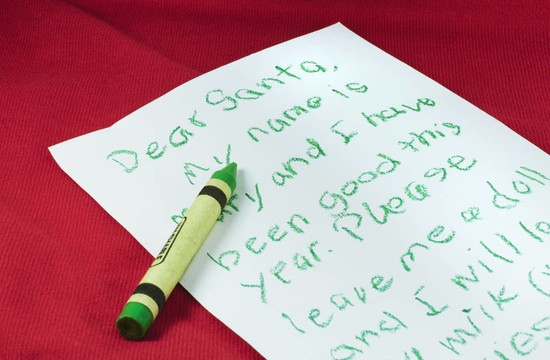 Dear Santa,
My name is
and I have
been good this
year. Please
leave me a doll
and I will
milk